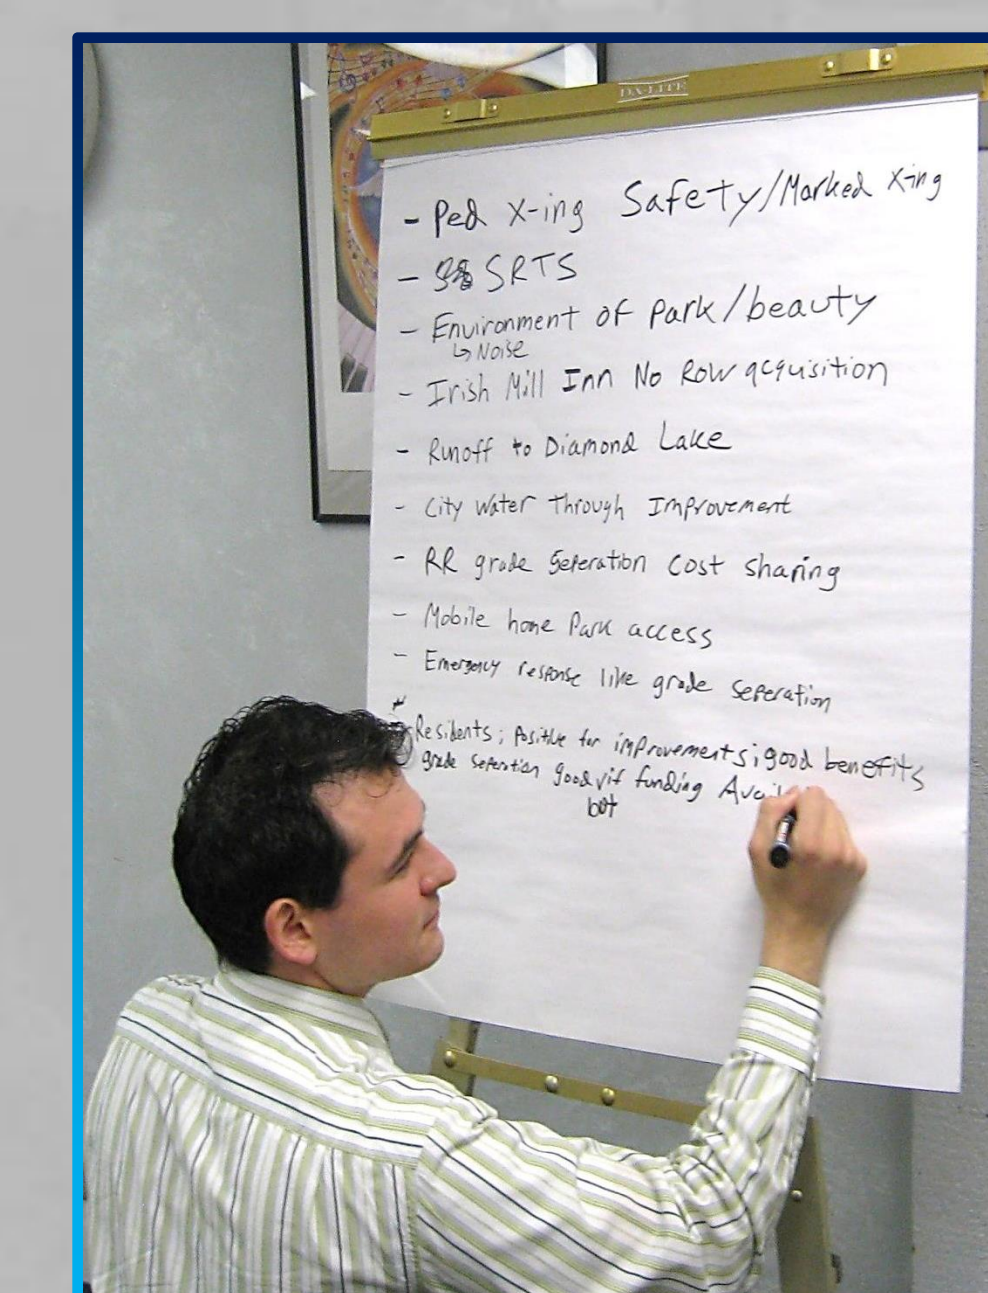 DA-LITE
- Ped X-ing Safety/Marked X-ing
- SRTS
- Environment of Park/beauty
↳ Noise
- Irish Mill Inn No Row acquisition
- Runoff to Diamond Lake
- City Water Through Improvement
- RR grade Seperation Cost Sharing
- Mobile home Park access
- Emergency response like grade seperation
Residents; Positive for improvements; good benefits
grade seperation good if funding Avail
but